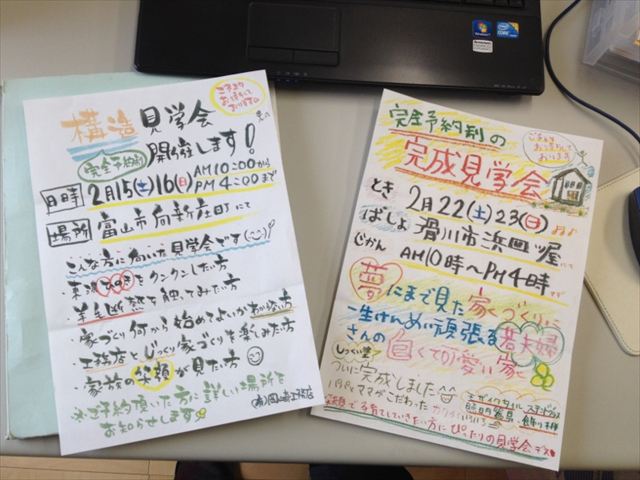 構造見学会
完全予約制
開催します!
日時 2月15(土)16(日) AM10:00から
PM4:00まで
場所 富山市向新庄町にて
こんな方に向いた見学会です
・末現ひのきをクンクンした方
・羊毛断熱を触ってみた方
・家づくり何から始めてよいかわからない方
・工務店とじっくり家づくりを楽しみた方
・家族の笑顔が見た方
※ご予約頂いた方に詳しい場所を
お知らせします
(有)岡崎工務店
完全予約制の
完成見学会
とき 2月22(土)23(日)
ばしょ 滑川市浜四ツ屋にて
じかん AM10時～PM4時まで
夢にまで見た家づくりに
一生けんめい頑張る若夫婦
さんの白くて可愛い家
ついに完成しました
パパとママがこだわった
笑顔で子育てしていきたい方にぴったりの見学会デス